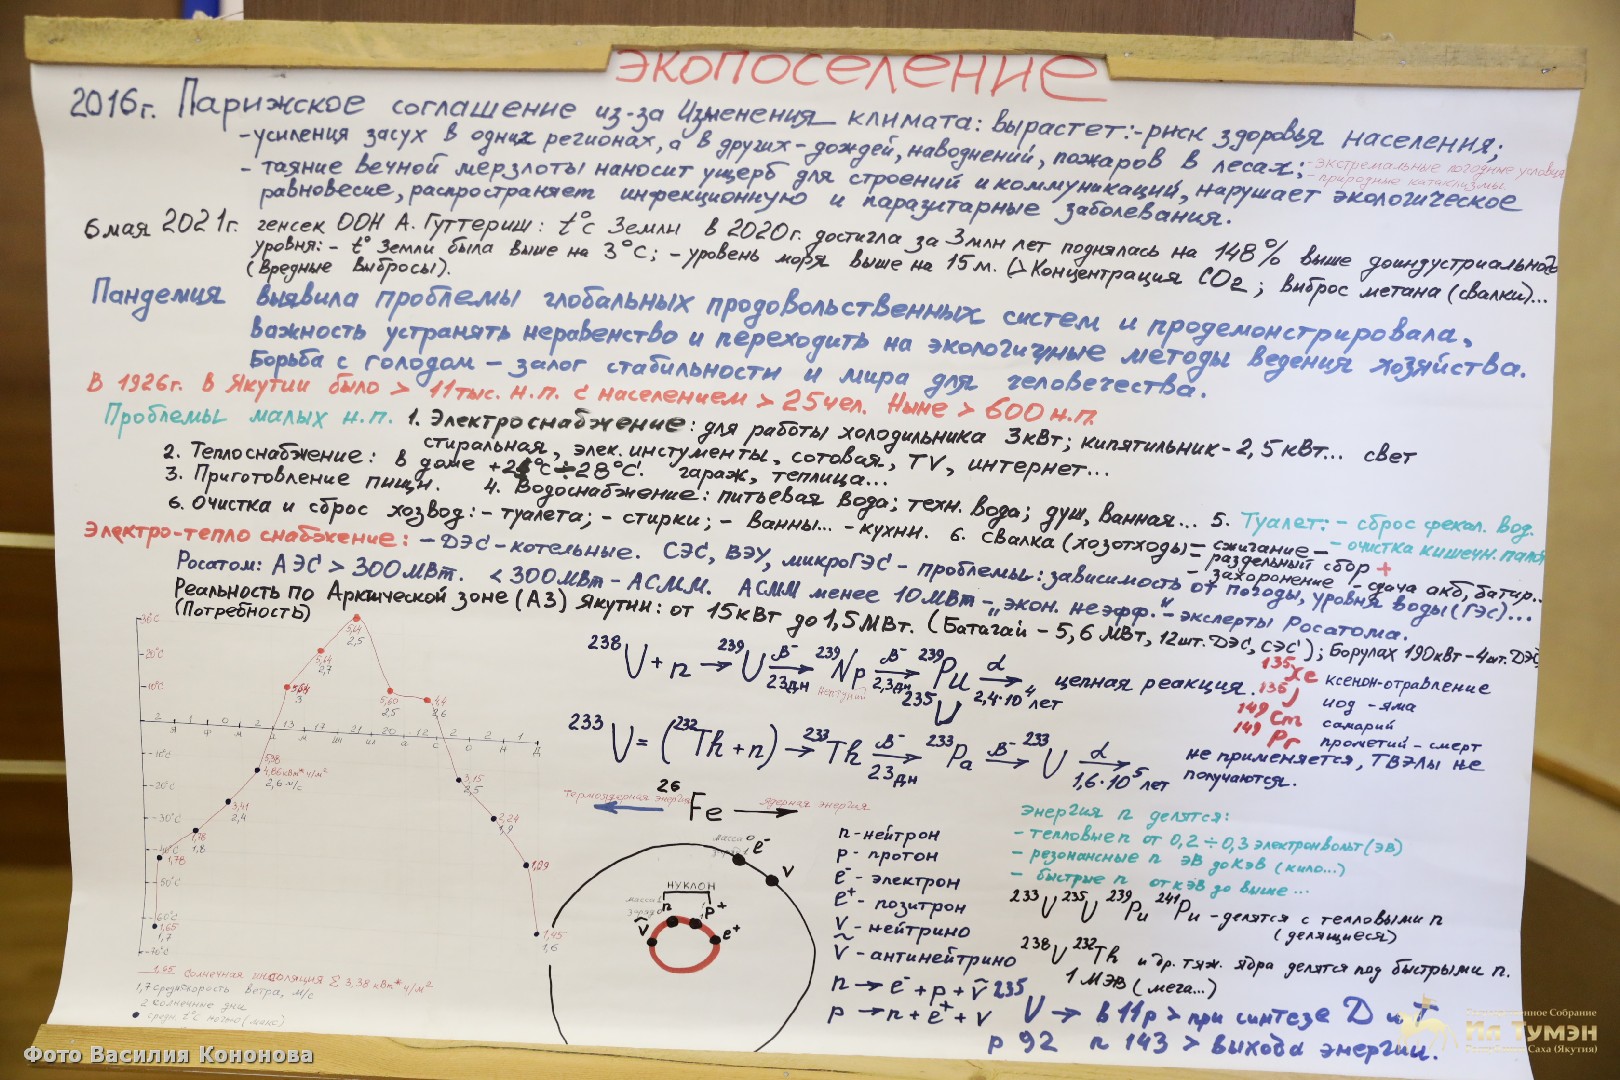 экопоселение
2016г. Парижское соглашение из-за Изменения климата: вырастет:-риск здоровья населения;
-усиления засух в одних регионах, а в других-дождей, наводнений, пожаров в лесах;
-экстремальные погодные условия
-природные катаклизмы
- таяние вечной мерзлоты наносит ущерб для строений и коммуникаций, нарушает экологическое
равновесие, распространяет инфекционную и паразитарные заболевания.
6 мая 2021г. генсек ООН А. Гуттериш: t°c Земли в 2020г. достигла за 3 млн лет поднялась на 148% выше доиндустриального
уровня: - t° Земли была выше на 3°С; - уровень моря выше на 15 м. (> Концентрация CO2; выброс метана (свалки)...
(Вредные выбросы).
Пандемия выявила проблемы глобальных продовольственных систем и продемонстрировала,
важность устранять неравенство и переходить на экологичные методы ведения хозяйства.
Борьба с голодом - залог стабильности и мира для человечества.
В 1926г. в Якутии было > 11 тыс. н.п. с населением > 25 чел. Ныне > 600 н.п.
Проблемы малых н.п. 1. Электроснабжение: для работы холодильника 3кВт; кипятильник-2,5 кВт... свет
стиральная, элек. инстументы, сотовая, TV, интернет...
2. Теплоснабжение: в доме ÷28°С. гараж, теплица...
3. Приготовление пищи. 4. Водоснабжение: питьевая вода; техн. вода; душ, ванная... 5. Туалет: - сброс фекал. вод.
- очистка кишечн.
6. Очистка и сброс хозвод: - туалета; - стирки; - ванны... - кухни. 6. Свалка (хозотходы) - сжигание
- раздельный сбор +
- захоронение - сдача акб, батар...
Электро-тепло снабжение: - ДЭС - котельные. СЭС, ВЭУ, микроГЭС - проблемы: зависимость от погоды, уровня воды (ГЭС)...
Росатом: АЭС > 300 МВт. < 300 МВт - АСММ. АСММ менее 10 МВт - "экон. неэфф." - эксперты Росатома.
Реальность по Арктической зоне (АЗ) Якутии: от 15 кВт до 1,5 МВт. (Батагай - 5,6 МВт, 12шт. ДЭС, СЭС); Борулах 190кВт - 4шт. ДЭС
(Потребность)
30°С
20°С
10°С
-10°С
-20°С
-30°С
-40°С
-50°С
-60°С
-70°С
Я Ф М А М И И А С О Н Д
5,64
2,5
5,64
2,7
3
5,60
2,5
4,4
2,6
5,38
4,86 кВт*ч/м²
2,6 м/с
3,41
2,4
1,76
1,8
1,78
1,65
1,7
3,15
2,5
2,24
1,9
1,09
1,45
1,6
1,45 солнечная инсоляция Σ 3,38 кВт*ч/м²
1,7 средн скорость ветра, м/с
2 солнечные дни
средн. t°c ночью (макс)
²³⁸U + n → ²³⁹U β⁻→ 23дн ²³⁹Np β⁻→ 2,3дн ²³⁹Pu α→ 2,4·10⁴ лет цепная реакция.
Нептуний
²³⁵U
²³³U = (²³²Th + n) → ²³³Th β⁻→ 23дн ²³³Pa β⁻→ ²³³U α→ 1,6·10⁵ лет
135 Xe ксенон-отравление
135 J иод - яма
149 Cm самарий
149 Pr прометий - смерт
не применяется, ТВЭЛы не
получаются.
Термоядерная энергия ← 26 Fe → ядерная энергия
масса 0
e⁻
v
нуклон
масса 1
n p⁺
ṽ e⁺
n - нейтрон
p - протон
e⁻ - электрон
e⁺ - позитрон
v - нейтрино
ṽ - антинейтрино
n → e⁻ + p + ṽ
p → n + e⁺ + v
Энергия n делятся:
- тепловые n от 0,2 ÷ 0,3 электронвольт (эВ)
- резонансные n эВ до кэВ (кило...)
- быстрые n от кэВ до выше...
²³³U ²³⁵U ²³⁹Pu ²⁴¹Pu - делятся с тепловыми n
(делящиеся)
²³⁸U ²³²Th и др. тяж. ядра делятся под быстрыми n.
1 МэВ (мега...)
²³⁵U → в 11р > при синтезе D и T
p 92 n 143 > выхода энергии.
Фото Василия Кононова
Государственное Собрание
Ил Тумэн
Республики Саха (Якутия)